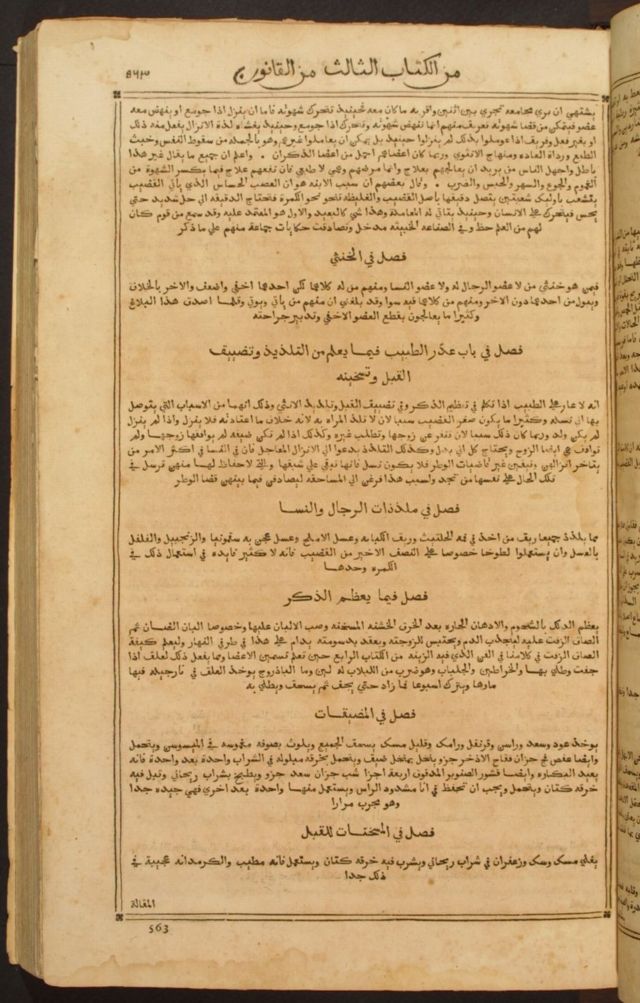 من الكتاب الثالث من القانون
٥٦٣
يشتهي ان يري مجامعه تجري بين اثنين واقربه ما كان معه فحينيذ تتحرك شهوته فاما ان ينزل اذا جومع او ينهض معه
عضو فيتمكن من قضا شهوته وفريق منهم انما تنهض شهوته وتتحرك اذا جومع وحينيذ يغشاه لذة الانزال بفعل منه ذلك
او بغير فعل وفريق اذا عوملوا بذلك لم ينزلوا حينيذ بل يمكن ان يعاملوا غيرهم وهو بالجملة من سقوط النفس وخبث
الطبع ورداة العاده ومنهاج الانثوي وربما كان اعضاهم اجمل من اعضا الذكران . واعلم ان جميع ما يقال غير هذا
باطل واجهل الناس من يريد ان يعالجهم بعلاج وانما مرضهم وهمي لا طبيعي فان نفعهم علاج فما يكسر الشهوة من
الهموم والجوع والسهر والحبس والضرب . وقال بعضهم ان سبب الابنه هو ان العصب الحساس الذي ياتي القضيب
يتشعب باوليك شعبتين يتصل دقيقها باصل القضيب والغليظه تنحو نحو الكمرة فتحتاج الدقيقه الي حك شديد حتي
يحس فيتحرك علي الانسان وحينيذ يتاتي له المعامله وهذا شي كالبعيد والاول هو المعتمد عليه وقد سمع من قوم كان
لهم من العلم حظ وفي الصناعه الخبيثه مدخل وتصادقت حكايات جماعة منهم علي ما ذكر
فصل في الخنثي
فيمن هو خنثي من لا عضو الرجال له ولا عضو النسا ومنهم من له كلاهما لكن احدهما اخفي واضعف والاخر بالخلاف
ويبول من احدهما دون الاخر ومنهم من كلاهما فيه سوا وقد بلغني ان منهم من ياتي ويوتي وقلما اصدق هذا البلاغ
وكثيرا ما يعالجون بقطع العضو الاخفي وتدبير جراحته
فصل في باب عذر الطبيب فيما يعلم من التلذيذ وتضييق
القبل وتسخينه
انه لا عار علي الطبيب اذا تكلم في تعظيم الذكر وفي تضييق القبل وتلذيذ الانثي وذلك انهما من الاسباب التي يتوصل
بها الي نسله وكثيرا ما يكون صغر القضيب سببا لان لا تلذ المراه به لانه خلاف ما اعتادته فلا ينزل واذا لم ينزل
لم يكن ولد وربما كان ذلك سببا لان تنفر عن زوجها وتطلب غيره وكذلك اذا لم تكن ضيقه لم يوافقها زوجها ولم
توافق هي ايضا الزوج ويحتاج كل الي بدل وكذلك التلذيذ يدعوا الي الانزال المعاجل فان في النسا في اكثر الامر من
يتاخر انزالهن وتبقين غير قاضيات الوطر فلا يكون نسل فانها تبقي علي شبقها والتي لا حفاظ لها منهن ترسل في
تلك الحال علي نفسها من تجد ولسبب هذا فزعن الي المساحقه ليصادفن فيما بينهن قضا الوطر
فصل في ملذذات الرجال والنسا
مما يلذذ جميعا ريف من اخذ في فمه الحلتيت وريق الكبابه وعسل الاملج وعسل عجن به سقمونيا والزنجبيل والفلفل
بالعسل وان يستعملوا لطوخا خصوصا علي النصف الاخير من القضيب فانه لا كثير فايده في استعمال ذلك في
الكمره وحدها
فصل فيما يعظم الذكر
يعظم الدلك بالشحوم والادهان الحاره بعد الخرق الخشنه المسخنه وصب الالبان عليها وخصوصا البان الضان ثم
الصاق الزفت عليه ليجذب الدم ويحتبس للزوجته ويعقد بدسومته يدام علي هذا في طرفي النهار وليعلم كيفية
الصاق الزفت في كلامنا في الفن الذي فيه الزينه من الكتاب الرابع حين نعلم تسمين الاعضا ومما يفعل ذلك لعلف اذا
جففت وطلي بها والخراطين والحلباب وهو ضرب من اللبلاب له لبن وما الباذروج يوخذ العلف في نارجيله فيها
ماوها ويترك اسبوعا فما زاد حتي يجف ثم يسحق ويطلي به
فصل في المضيقات
يوخذ عود وسعد وراسن وقرنفل ورامك وقليل مسك يسحف الجميع ويلوث بصوفه مغموسه في الميسوسن ويتحمل
وايضا عفص فج جزان فقاح الاذخر جزو ينخل بمنخل ضيق ويتحمل بخرقه مبلوله في الشراب واحدة بعد واحدة فانه
يعيد البكاره وايضا قشور الصنوبر المدقوق اربعة اجزا شب جزان سعد جزو ويطبخ بشراب ريحاني وتبل فيه
خرقه كتان ويتحمل ويجب ان تحفظ في انا مشدود الراس ويستعمل منها واحدة بعد اخري فهي جيده جدا
وهو مجرب مرارا
فصل في المسخنات للقبل
يغلي مسك وسك وزعفران في شراب ريحاني ويشرب فيه خرقه كتان ويستعمل فانه مطيب والكرمدانه عجيبة في
ذلك جدا
المقالة
563